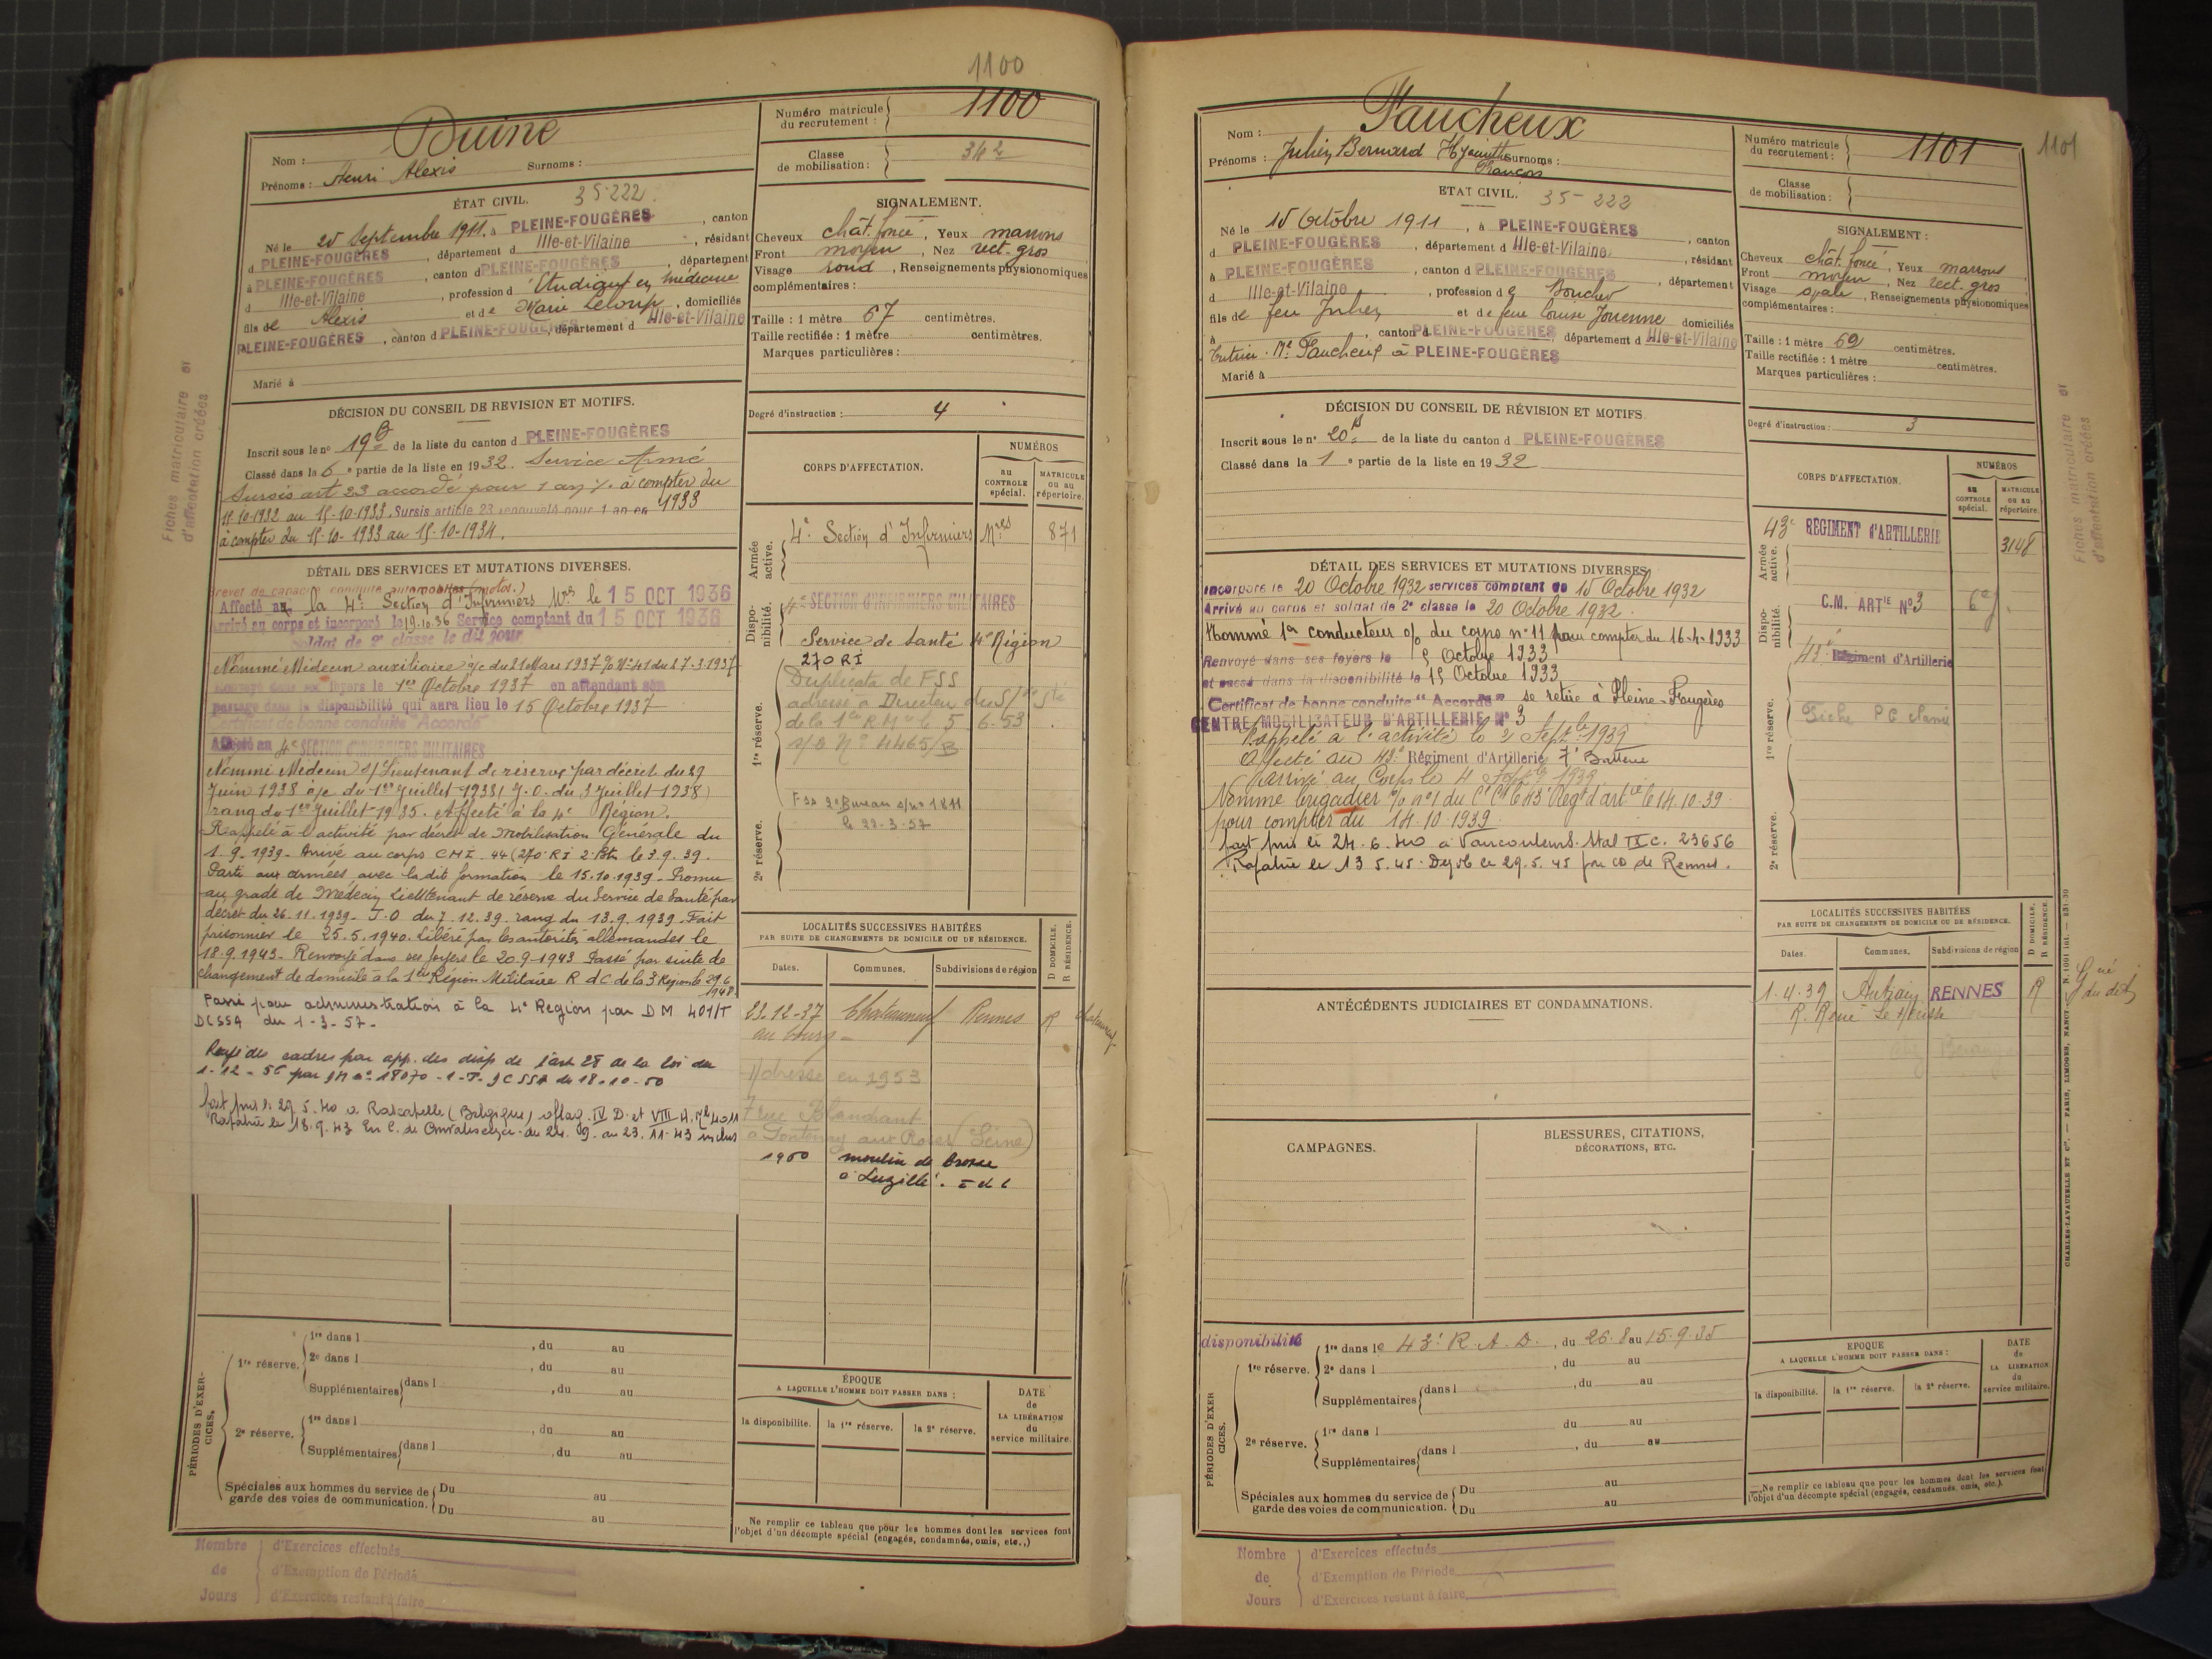 1100
Nom : Duine
Prénoms : Henri Alexis Surnoms :
Numéro matricule du recrutement : 1100
Classe de mobilisation : 34 2
ÉTAT CIVIL. 35-222
Né le 25 Septembre 1911, à PLEINE-FOUGÈRES, canton
d PLEINE-FOUGÈRES, département d Ille-et-Vilaine, résidant
à PLEINE-FOUGÈRES, canton d PLEINE-FOUGÈRES, département
d Ille-et-Vilaine, profession d' Etudiant en médecine
fils de Alexis et de Marie Leloup, domiciliés
PLEINE-FOUGÈRES, canton d PLEINE-FOUGÈRES, département d Ille-et-Vilaine
Marié à
SIGNALEMENT.
Cheveux chât. foncé, Yeux marrons
Front moyen, Nez rect. gros
Visage rond, Renseignements physionomiques
complémentaires :
Taille : 1 mètre 67 centimètres.
Taille rectifiée : 1 mètre centimètres.
Marques particulières :
Degré d'instruction : 4
DÉCISION DU CONSEIL DE REVISION ET MOTIFS.
Inscrit sous le n° 19 B de la liste du canton d PLEINE-FOUGÈRES
Classé dans la 6 e partie de la liste en 1932. Service Armé
Sursis art 23 accordé pour 1 an à compter du
15-10-1932 au 15-10-1933. Sursis article 23 renouvelé pour 1 an en 1933
à compter du 15-10-1933 au 15-10-1934.
CORPS D'AFFECTATION.
NUMÉROS
au CONTROLE spécial.
MATRICULE ou au répertoire.
Armée active.
4e Section d'Infirmiers Mres 871
Disponibilité.
4e SECTION D'INFIRMIERS MILITAIRES
Service de Santé 4e Région
270 RI
1re réserve.
Duplicata de FSS
adressé à Directeur du S/ de Sté
de la 1ère R.M le 5.6.53
s/o N° 4465/B
FSS 2e Bureau s/no 1811
le 22-3-57
2e réserve.
DÉTAIL DES SERVICES ET MUTATIONS DIVERSES.
Brevet de capacité conduite automobiles (motos).
Affecté au la 4e Section d'Infirmiers Mres le 15 OCT 1936
Arrivé au corps et incorporé le 19.10.36 Service comptant du 15 OCT 1936
Soldat de 2e classe le dit jour
Nommé Médecin auxiliaire à/c du 21 Mars 1937 % N° 41 du 27.3.1937
Renvoyé dans ses foyers le 1er Octobre 1937 en attendant son
passage dans la disponibilité qui aura lieu le 15 Octobre 1937
Certificat de bonne conduite "Accordé"
Affecté au 4e SECTION D'INFIRMIERS MILITAIRES
Nommé Médecin s/Lieutenant de réserve par décret du 29
Juin 1938 à/c du 1er Juillet 1938 (J.O. du 3 Juillet 1938)
rang du 1er Juillet 1935. Affecté à la 4e Région.
Rappelé à l'activité par décret de Mobilisation Générale du
1.9.1939. Arrivé au corps CMI 44 (270 RI 2 Btn le 3.9.39.
Parti aux armées avec la dit formation le 15.10.1939. Promu
au grade de Médecin Lieutenant de réserve du Service de Santé par
décret du 26.11.1939. J.O du 7.12.39. rang du 13.9.1939. Fait
prisonnier le 25.5.1940. Libéré par les autorités allemandes le
18.9.1943. Renvoyé dans ses foyers le 20.9.1943 Passé par suite de
changement de domicile à la 1ère Région Militaire R d C de la 3 Région le 29.6
1948
Passé pour administration à la 4e Region par DM 401/T
DCSSA du 1-3-57-
Rayé des cadres par app. des disp de l'art 28 de la loi du
1-12-56 par DM n° 18070-1-T-DCSSA du 18-10-60
fait pris le 29.5.40 à (Belgique) oflag. IV D et VIII H. Mle 4011
Rapatrié le 18.9.43 En C. de Convalescence du 24.9. au 23.11-43 inclus
LOCALITÉS SUCCESSIVES HABITÉES
PAR SUITE DE CHANGEMENTS DE DOMICILE OU DE RÉSIDENCE.
Dates. Communes. Subdivisions de région
D DOMICILE. R RÉSIDENCE.
23-12-37 Chateauneuf Rennes R Chateauneuf
au bourg
Adresse en 1953
7 rue Blanchard
à Fontenay aux Roses (Seine)
1960 moulin de brosse
à Luzillé. I et L
PÉRIODES D'EXERCICES.
1re réserve. 1re dans l , du au
2e dans l , du au
Supplémentaires dans l , du au
2e réserve. 1re dans l , du au
Supplémentaires dans l , du au
Spéciales aux hommes du service de garde des voies de communication. Du au
Du au
ÉPOQUE
A LAQUELLE L'HOMME DOIT PASSER DANS :
la disponibilité. la 1re réserve. la 2e réserve.
DATE de LA LIBÉRATION du service militaire.
Ne remplir ce tableau que pour les hommes dont les services font
l'objet d'un décompte spécial (engagés, condamnés, omis, etc.,)
Nombre de Jours
d'Exercices effectués
d'Exemption de Période
d'Exercices restant à faire
Fiches matriculaire et
d'affectation créées
1101
Nom : Faucheux
Prénoms : Julien Bernard Hyacinthe Surnoms :
François
Numéro matricule du recrutement : 1101
Classe de mobilisation :
ÉTAT CIVIL. 35-222
Né le 15 Octobre 1911, à PLEINE-FOUGÈRES, canton
d PLEINE-FOUGÈRES, département d Ille-et-Vilaine, résidant
à PLEINE-FOUGÈRES, canton d PLEINE-FOUGÈRES, département
d Ille-et-Vilaine, profession de Boucher
fils de feu Julien et de feue Louise Jouenne domiciliés
à , canton d PLEINE-FOUGÈRES, département d Ille-et-Vilaine
Tutrice. Me Faucheux à PLEINE-FOUGÈRES
Marié à
SIGNALEMENT :
Cheveux chât. foncé, Yeux marrons
Front moyen, Nez rect. gros
Visage ovale, Renseignements physionomiques
complémentaires :
Taille : 1 mètre 62 centimètres.
Taille rectifiée : 1 mètre centimètres.
Marques particulières :
Degré d'instruction : 3
DÉCISION DU CONSEIL DE RÉVISION ET MOTIFS.
Inscrit sous le n° 20 de la liste du canton d PLEINE-FOUGÈRES
Classé dans la 1 e partie de la liste en 1932
CORPS D'AFFECTATION.
NUMÉROS
au CONTROLE spécial.
MATRICULE ou au répertoire.
Armée active.
43e RÉGIMENT D'ARTILLERIE 3148
Disponibilité.
C.M. ARTIE N°3
43e Régiment d'Artillerie
1re réserve.
Fiche PG classée
2e réserve.
DÉTAIL DES SERVICES ET MUTATIONS DIVERSES.
Incorporé le 20 Octobre 1932 services comptant du 15 Octobre 1932
Arrivé au corps et soldat de 2e classe le 20 Octobre 1932.
Nommé 1er conducteur o/ du corps n° 11 pour compter du 16-4-1933
Renvoyé dans ses foyers le 5 Octobre 1933
et passé dans la disponibilité le 15 Octobre 1933
Certificat de bonne conduite "Accordé" se retire à Pleine-Fougères
CENTRE MOBILISATEUR D'ARTILLERIE N° 3
Rappelé à l'activité le 2 Septbre 1939
Affecté au 43e Régiment d'Artillerie 7e Batterie
arrivé au Corps le 4 Septbre 1939
Nommé brigadier % n° 1 du Ct le 43e Regt d'artie le 14.10.39
pour compter du 14.10.1939.
fait pris le 24.6.40 à Vaucouleurs. Stal IX C. 23656
Rapatrié le 13.5.45. Démob le 29.5.45 par CD de Rennes.
ANTÉCÉDENTS JUDICIAIRES ET CONDAMNATIONS.
CAMPAGNES.
BLESSURES, CITATIONS, DÉCORATIONS, ETC.
LOCALITÉS SUCCESSIVES HABITÉES
PAR SUITE DE CHANGEMENTS DE DOMICILE OU DE RÉSIDENCE.
Dates. Communes. Subdivisions de région
D DOMICILE. R RÉSIDENCE
1.4.39 Antrain RENNES R
disponibilité
PÉRIODES D'EXERCICES.
1re réserve. 1re dans le 43e R.A.D., du 26.8 au 15.9.35
2e dans l , du au
Supplémentaires dans l , du au
2e réserve. 1re dans l du au
Supplémentaires dans l , du au
Spéciales aux hommes du service de garde des voies de communication. Du au
Du au
EPOQUE
A LAQUELLE L'HOMME DOIT PASSER DANS :
la disponibilité. la 1re réserve. la 2e réserve.
DATE de LA LIBERATION du service militaire.
Ne remplir ce tableau que pour les hommes dont les services font
l'objet d'un décompte spécial (engagés, condamnés, omis, etc.).
Nombre de Jours
d'Exercices effectués
d'Exemption de Période
d'Exercices restant à faire
Fiches matriculaire et
d'affectation créées
CHARLES-LAVAUZELLE ET Cie. — PARIS, LIMOGES, NANCY